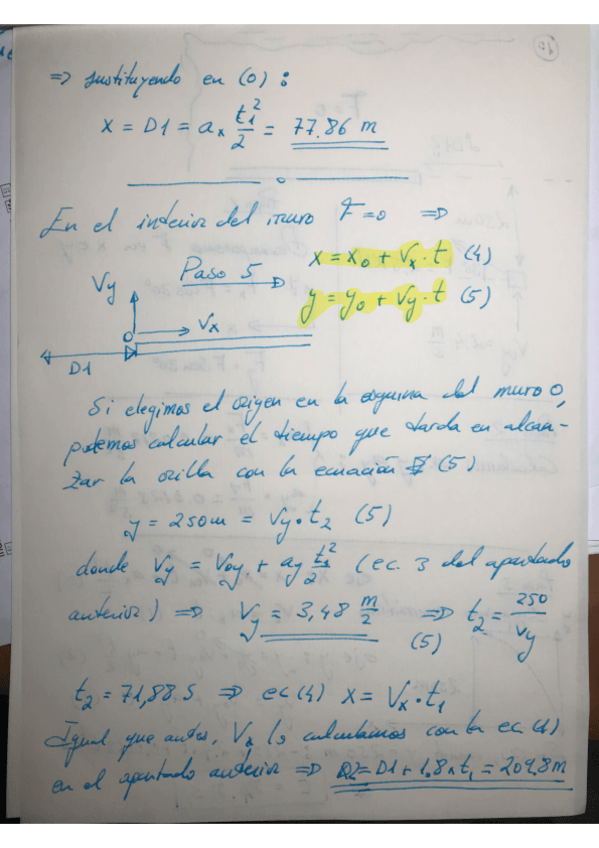 ⇒ sustituyendo en (0) :
x = D1 = aₓ t₁²/2 = 77.86 m
En el interior del muro F = 0 ⇒
Paso 5
x = x₀ + Vₓ · t (4)
y = y₀ + Vy · t (5)
Vy
Vₓ
O
D1
Si elegimos el origen en la esquina del muro O,
podemos calcular el tiempo que tarda en alcan-
zar la orilla con la ecuación (5)
y = 250m = Vy · t₂ (5)
donde Vy = Voy + ay t₁²/2 (ec. 3 del apartado
anterior) ⇒ Vy = 3,48 m/2 ⇒ (5) t₂ = 250/Vy
t₂ = 71,88 s ⇒ ec(4) x = Vₓ · t₁
Igual que antes, Vₓ lo calculamos con la ec (1)
en el apartado anterior ⇒ D2 = D1 + 1.8 x t₁ = 209.8 m